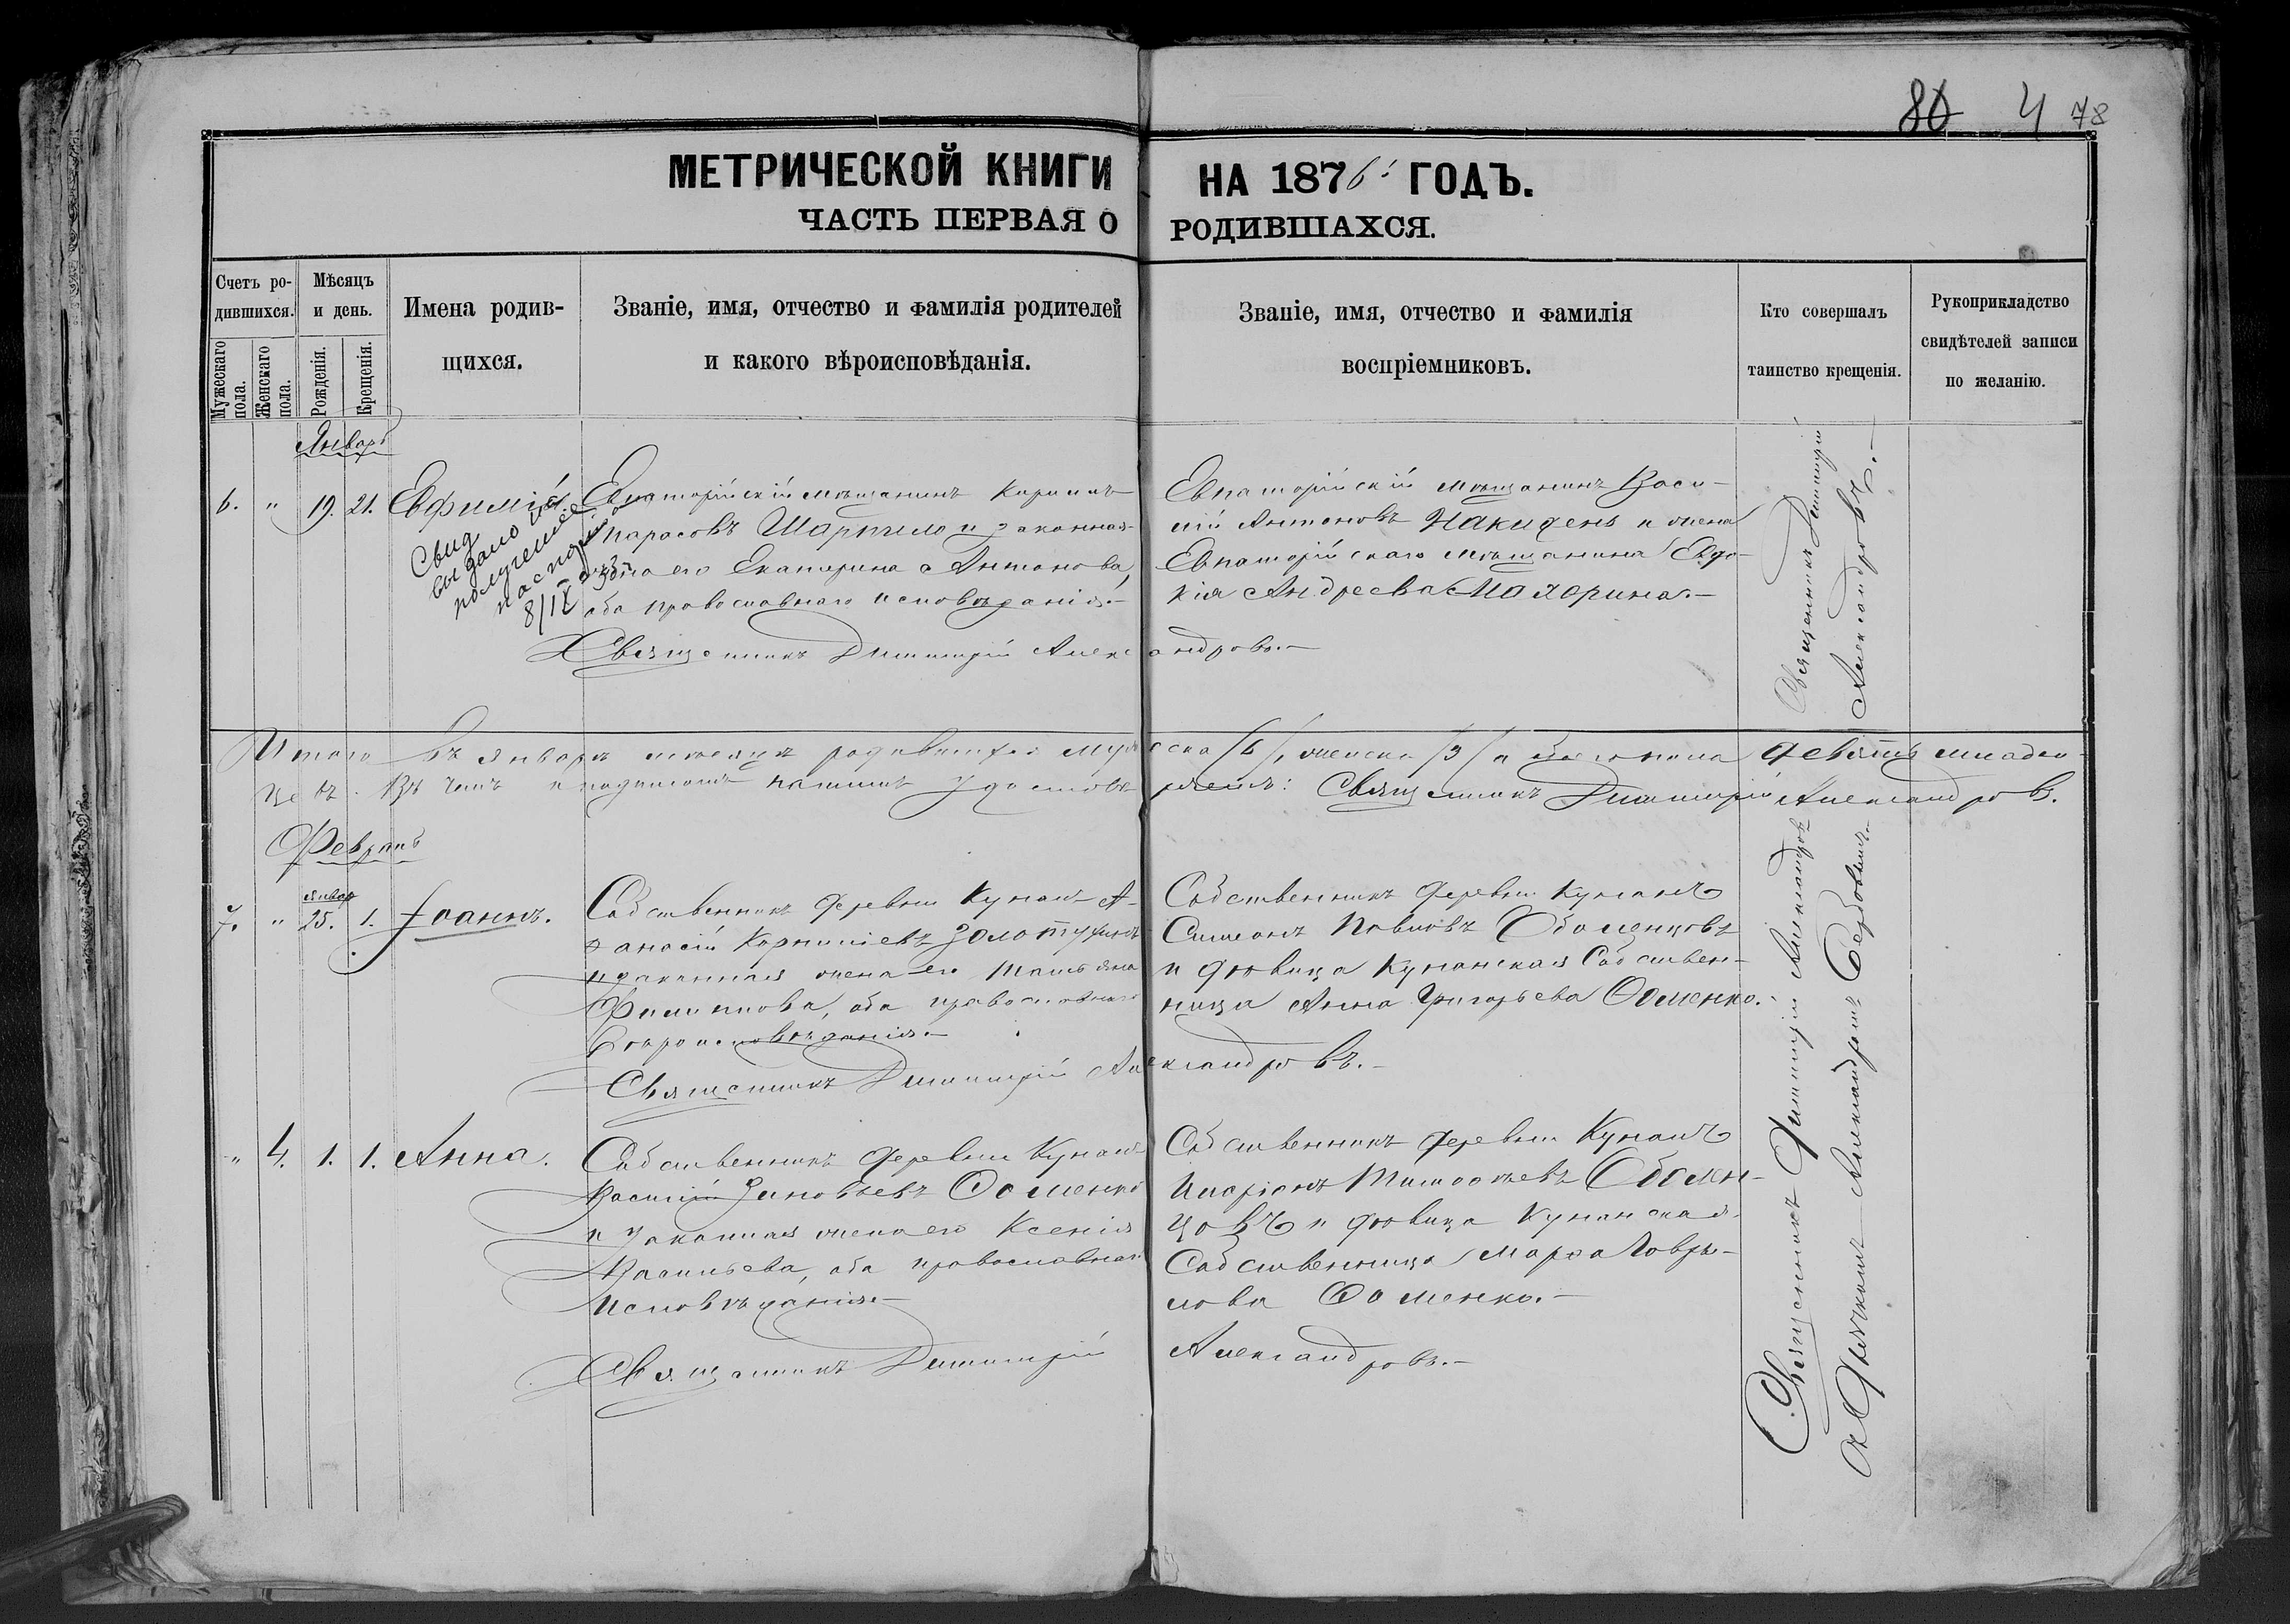 80 4 78
МЕТРИЧЕСКОЙ КНИГИ НА 1876й ГОДЪ.
ЧАСТЬ ПЕРВАЯ О РОДИВШАХСЯ.
Счетъ ро-
дившихся.
Мужескаго пола.
Женскаго пола.
Мѣсяцъ
и день.
Рожденія.
Крещенія.
Имена родив-
щихся.
Званіе, имя, отчество и фамилія родителей
и какого вѣроисповѣданія.
Званіе, имя, отчество и фамилія
воспріемниковъ.
Кто совершалъ
таинство крещенія.
Рукоприкладство
свидѣтелей записи
по желанію.
Январь
6. " 19. 21. Ефимій.
Свид
выдано на
получение
паспорта
8/IX
Евпаторійскій мѣщанинъ Кирилъ
Тарасовъ Шарпило и законная
жена его Екатерина Антонова,
оба православнаго исповѣданія.—
Евпаторійскій мѣщанинъ Васи-
лій Антоновъ Накидень и жена
Евпаторійскаго мѣщанина Евдо-
кія Андреева
Священникъ Димитрій Александровъ.—
Священникъ Димитрій
Александровъ.—
Итого въ январѣ мѣсяцѣ родившихся мужеска /6/, женска /3/ а обоего пола девять младен-
цевъ. Въ чемъ и подписомъ нашимъ удостовѣряемъ: Священникъ Димитрій Александровъ.
Февраль
январ
7. " 25. 1. Іоаннъ.
Собственникъ деревни Кунанъ А-
фанасій Корниліевъ Золотухинъ
и законная жена его Татьяна
Филиппова, оба православнаго
вѣроисповѣданія.—
Собственникъ деревни Кунанъ
Симеонъ Павловъ Оболенцовъ
и дѣвица Кунанская Собствен-
ница Анна Григорьева Фоменко.-
Священникъ Димитрій Александровъ.—
" 4. 1. 1. Анна.
Собственникъ деревни Кунанъ
Василій Зиновьевъ Фоменко
и законная жена его Ксенія
Васильева, оба православнаго
исповѣданія.—
Собственникъ деревни Кунанъ
Иларіонъ Тимоѳѣевъ Оболен-
цовъ и дѣвица Кунанская
Собственница Марфа Гаври-
лова Фоменко.—
Священникъ Димитрій Александровъ.—
Священникъ Димитрій Александровъ
съ Дьячкомъ Александромъ Сербовымъ